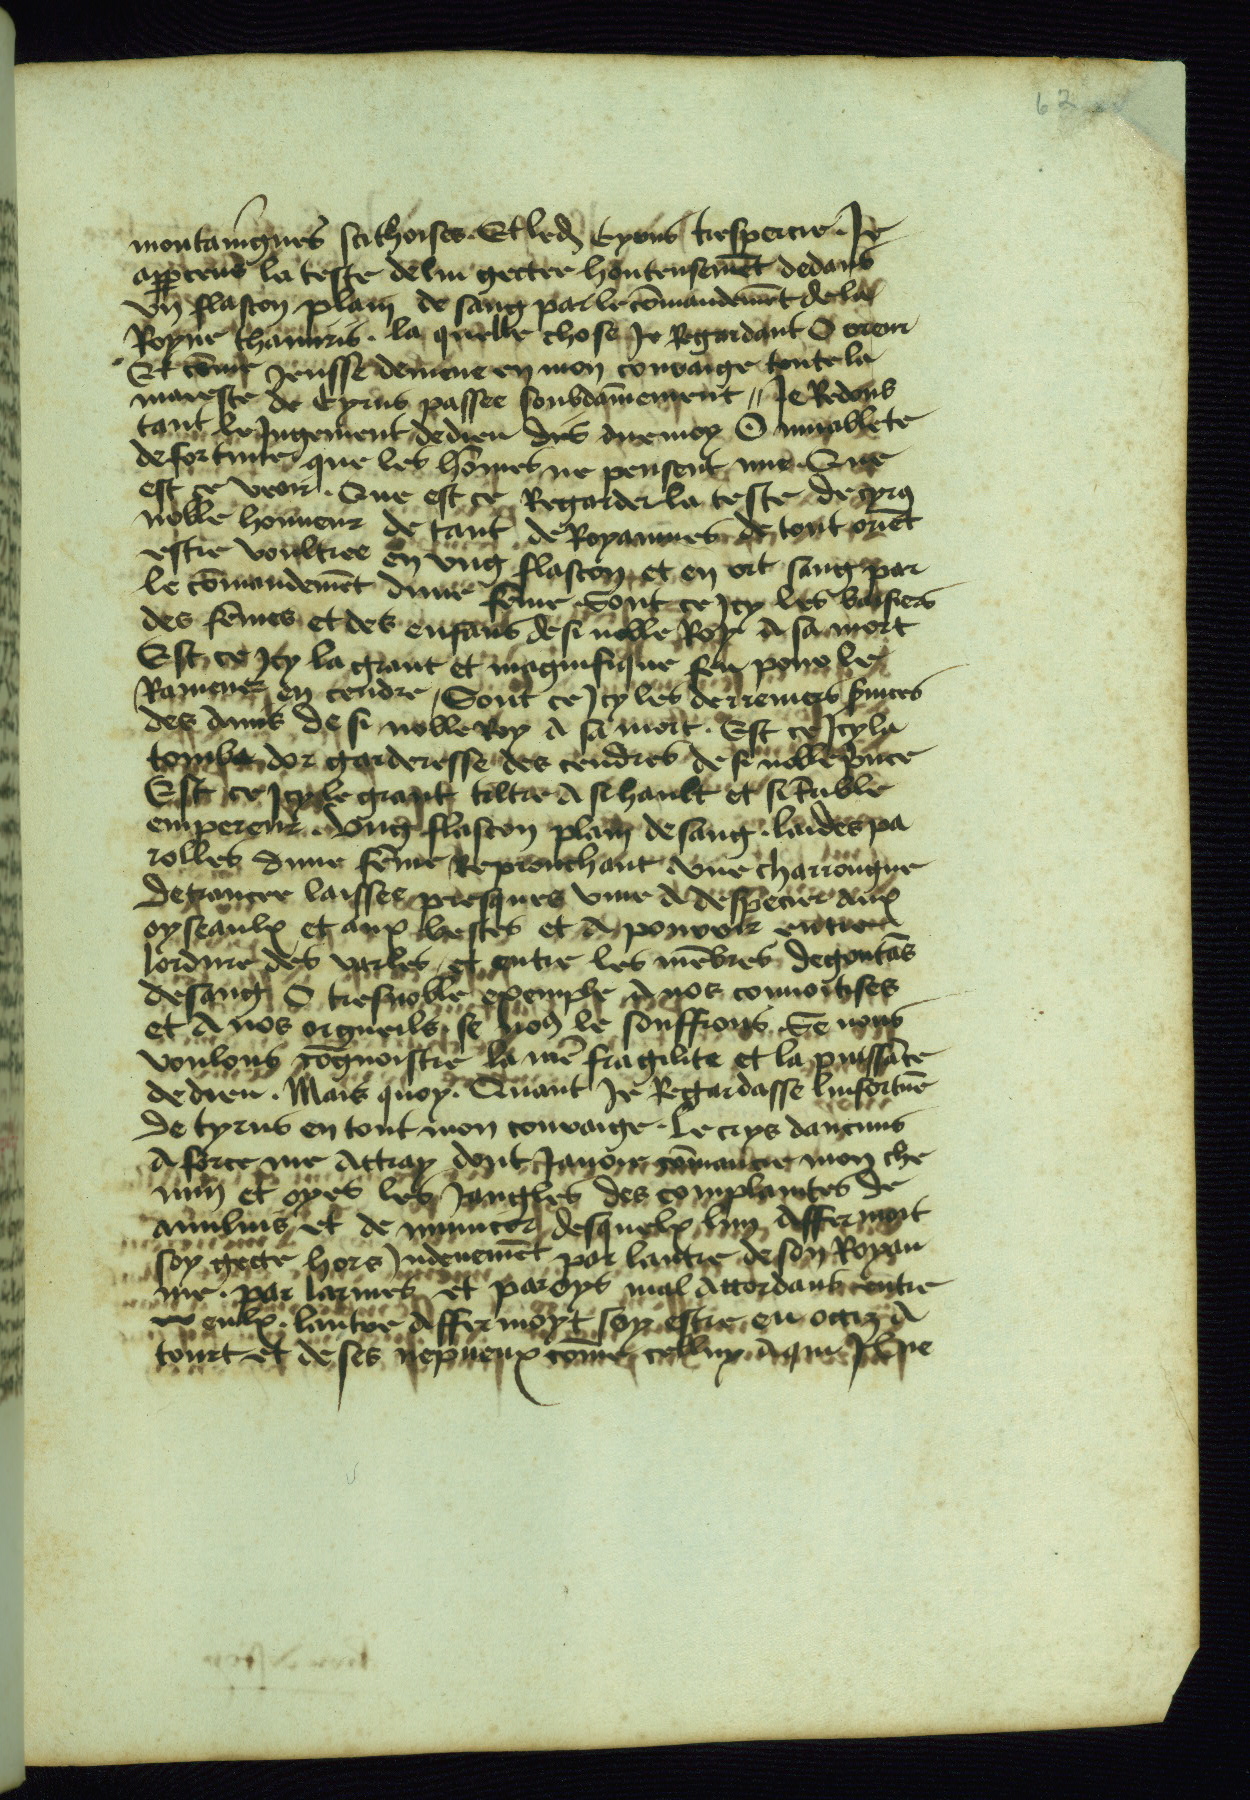 62
montaingnes scithoises. Et led Cyrus trespercie. Je
apperceus la teste de lui gectee honteusemēt dedans
vn flascon plain de sang par le cōmandemēt de la
Royne thamiris. la quelle chose Je Regardant O oreur
Et cōme Jeusse demene en mon couraige toute la
maieste de Cyrus passee soubdainement // Je Redoub
tant le Jugement de dieu dis a moy O muablete
de fortune que les hōmes ne pensent mie. Que
est ce veoir. Que est ce Regarder la teste de cyrus
noble honneur de tant de Royaumes de tout oriēt
estre voultree en vng flascon et en ort sang par
le cōmandemēt dune fēme. Sont ce Jcy les baisiers
des fēmes et des enfans de si noble Roy A sa mort
Est ce Jcy la grant et magnifique feu pour le
Ramener en cendre / Sont ce Jcy les derreniers seruices
des amis de si noble Roy A sa mort. Est ce Jcy la
tombe dor garderesse des cendres de si noble prince
Est ce Jcy le grant tiltre A si hault et si notable
empereur. Vng flascon plain de sang. laides pa
rolles dune fēme Reprouchant. vne charrongne
detrancee laisses presques viue A despecier aux
oyseaulx et aux bestes et A pouoir entre
lordure des varles et entre les mēbres degoutās
de sang O tresnoble exemple A nos conuoitises
et A nos orgueils se nous le souffrons. Se nous
voulons cōgnoistre la fragilite et la puissāce
de dieu. Mais quoy. Quant Je Regardasse linfortune
de cyrus en tout mon couraige. Le crys daucuns
A force me Attray dont Jauoie cōmancie mon che
min et oyes les Jangles des complaintes de
amulius et de numitor desquelx lun Affermoit
soy gecte hors Jndeuemēt par lautre de son Royau
me. par larmes et par crys mal Accordans entre
eulx. lautre Affermoyt soy estre en occiz A
tourt et de ses nepueux cōme celluy A qui Jl ne